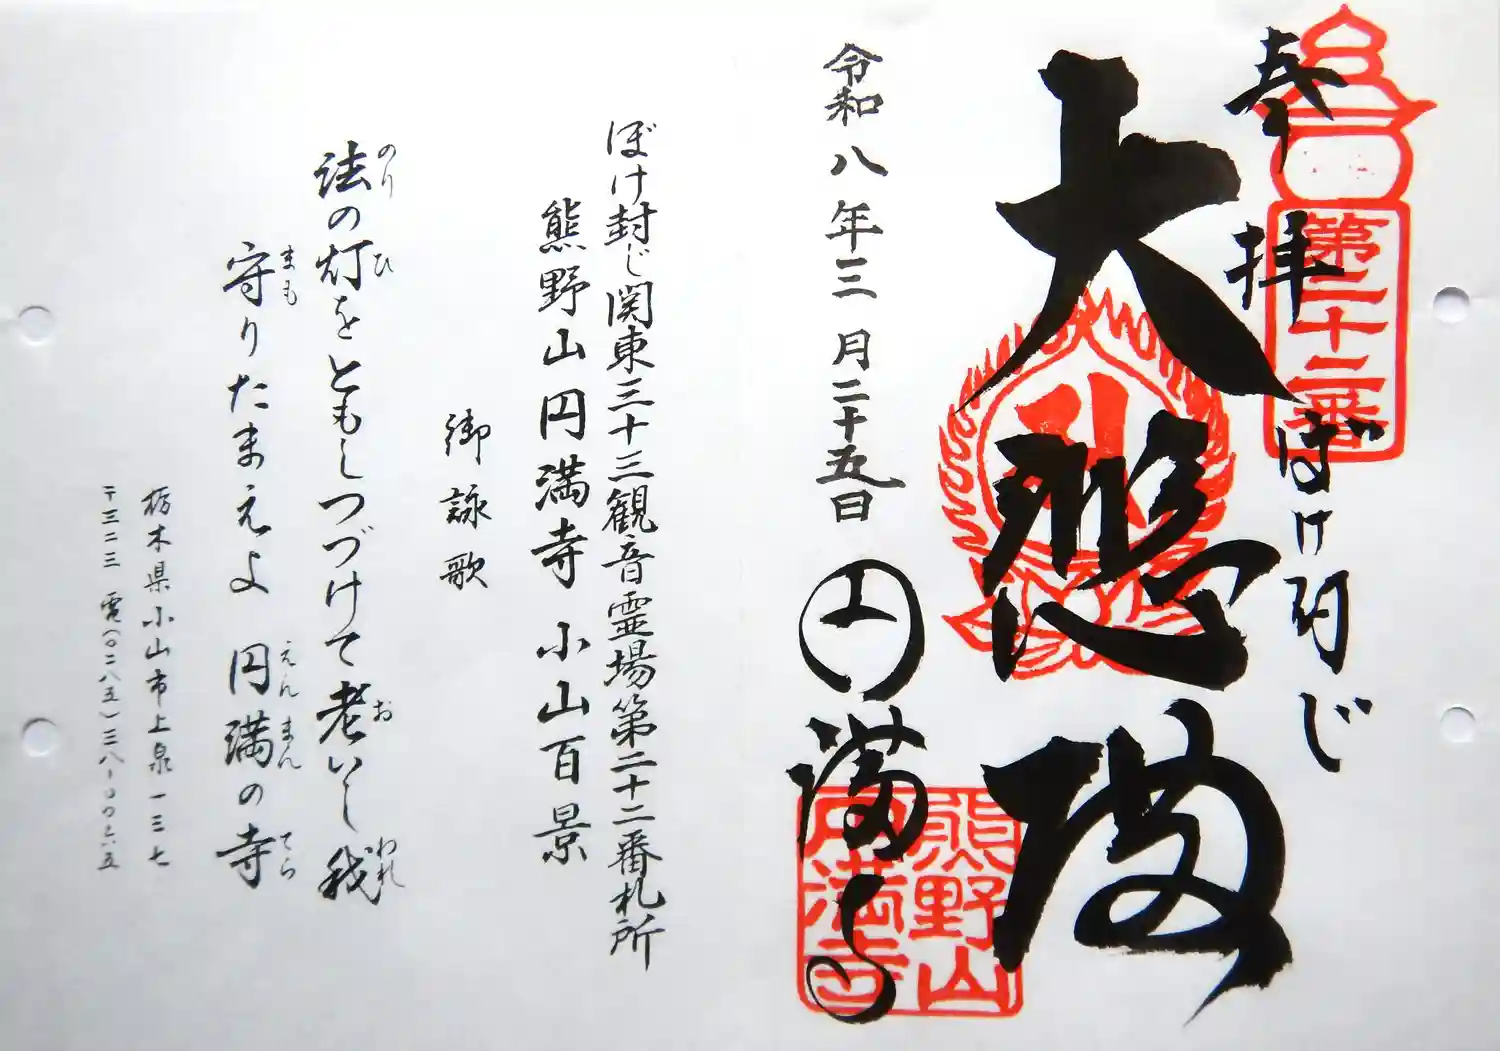 奉拝
第二十二番
ぼけ封じ
大悲殿
円満寺
熊野山
円満寺
令和八年三月二十五日
ぼけ封じ関東三十三観音霊場第二十二番札所
熊野山円満寺 小山百景
御詠歌
法の灯をともしつづけて老いし我
のり ひ お われ
守りたまえよ 円満の寺
まも えんまん てら
栃木県小山市上泉一三七
〒三二三 電(〇二八五)三八-〇〇六五